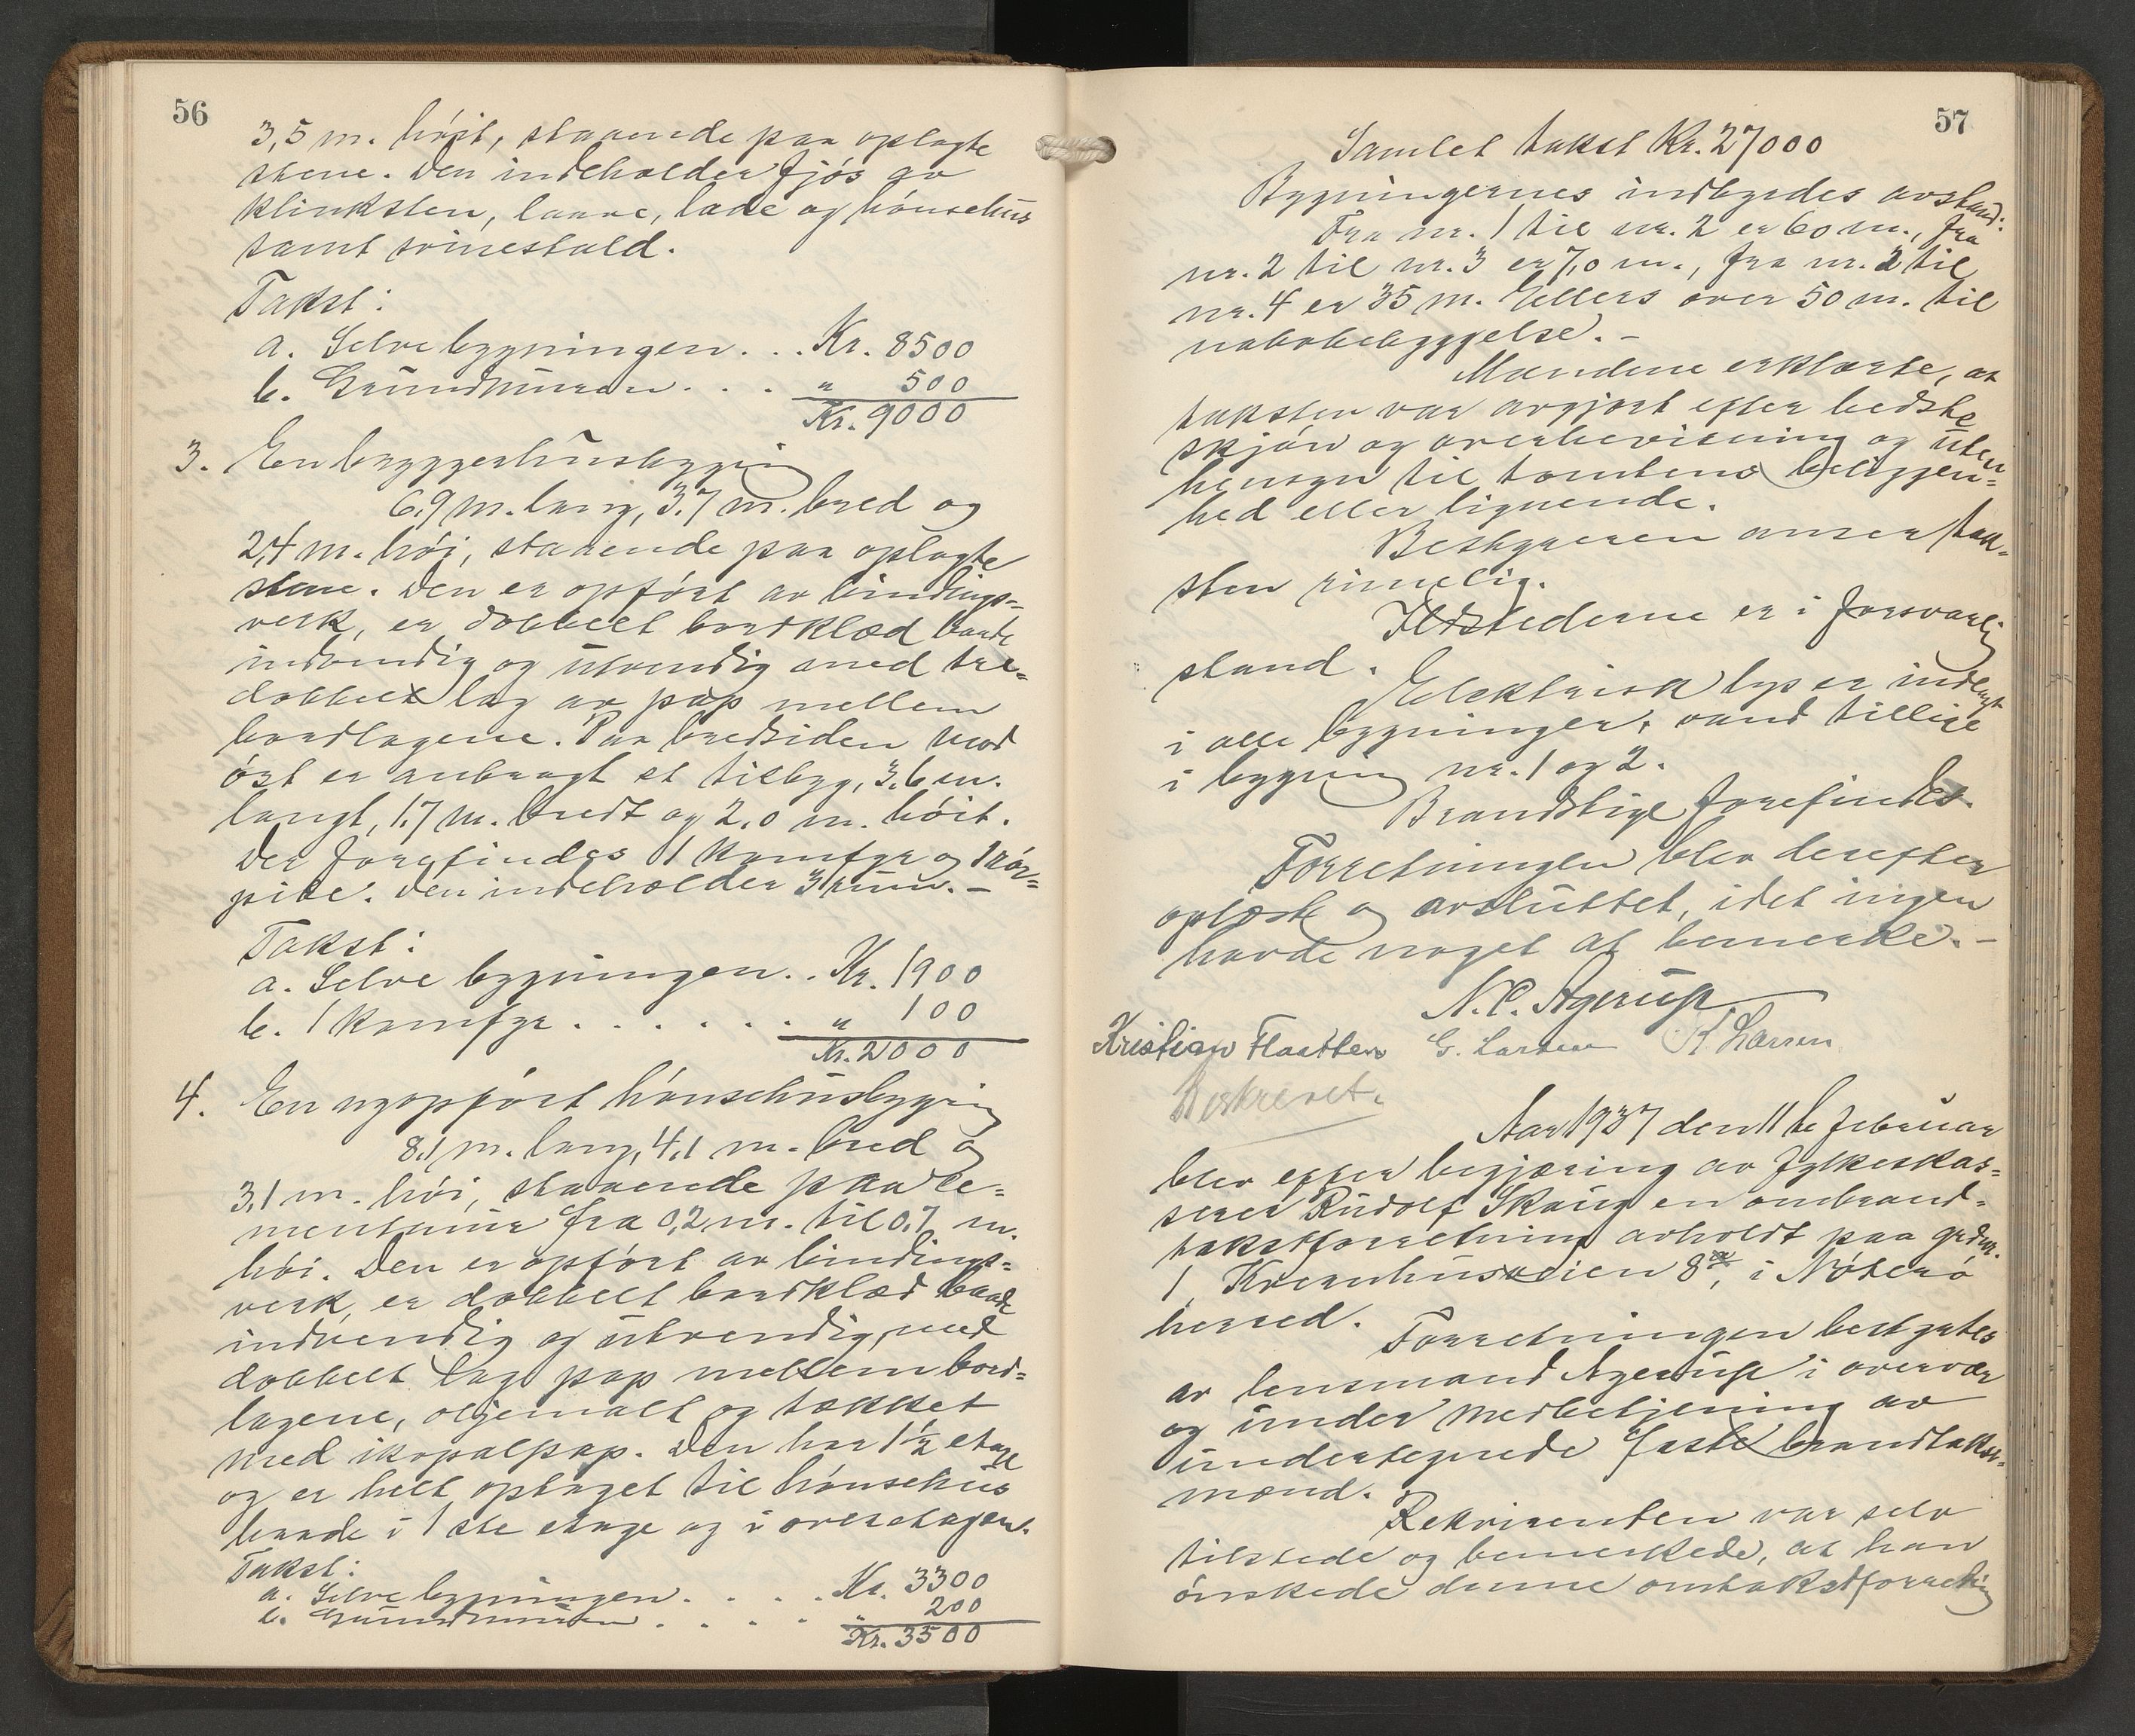 56
3,5 m. høit, staaende paa oplagte
stene. Den indeholder fjøs av
klinksten, laave, lade og hønsehus
samt svinestald.
Takst:
a. Selve bygningen. . . Kr. 8500
b. Grundmuren. . . " 500
Kr. 9000
3. En bryggerhusbygning
6,9 m. lang, 3,7 m. bred og
2,4 m. høi, staaende paa oplagte
stene. Den er opført av bindings=
verk, er dobbelt bordklæd baade
indvendig og utvendig med tre=
dobbelt lag av pap mellem
bordlagene. Paa bredsiden mod
øst er anbragt et tilbyg, 3,6 m.
langt, 1,7 m. bredt og 2,0 m. høit.
Der forefindes 1 komfyr og 1 rør=
pibe. Den indeholder 3 rum. –
Takst:
a. Selve bygningen. . Kr. 1900
b. 1 komfyr . . . . . . " 100
Kr. 2000
4. En nyopført hønsehusbygning
8,1 m. lang, 4,1 m. bred og
3,1 m. høi, staaende paa ce=
mentmur fra 0,2 m. til 0,7 m.
høi. Den er opført av bindings=
verk, er dobbelt bordklæd baade
indvendig og utvendig, med
dobbelt lag pap mellem bord=
lagene, oljemalt og tækket
med ikopalpap. Den har 1 1/2 etage
og er helt optaget til hønsehus
baade i 1ste etage og i overetagen.
Takst:
a. Selve bygningen. . . . Kr. 3300
b. Grundmuren . . . . " 200
Kr. 3500
57
Samlet takst Kr. 27000
Bygningernes indbyrdes avstand:
Fra nr. 1 til nr. 2 er 60 m., fra
nr. 2 til nr. 3 er 7,0 m., fra nr. 2 til
nr. 4 er 35 m. Ellers over 50 m. til
nabobebyggelse. –
Mændene erklærte, at
taksten var avgjort efter bedste
skjøn og overbevisning og uten
hensyn til tomtens beliggen=
hed eller lignende.
Bestyreren anser tak=
sten rimelig.
Ildstederne er i forsvarlig
stand.
Elektrisk lys er indlagt
i alle bygninger, vand tillike
i bygning nr. 1 og 2.
Brandstige forefindes.
Forretningen blev derefter
oplæst og avsluttet, idet ingen
havde noget at bemerke. –
N. C. Agerup
Kristian Flaatten G. Larsen K Larsen
Beskrevet.
Aar 1937 den 11te februar
blev efter begjæring av fylkeskas=
serer Rudolf Skaug en ombrand=
takstforretning avholdt paa grdnr.
1, Kvernhusveien 8, i Nøterø
herred.
Forretningen bestyrtes
av lensmand Agerup i overvær
og under medbetjening av
undertegnede faste brandtakst=
mænd.
Rekvirenten var selv
tilstede og bemerkede, at han
ønskede denne omtakstforretning